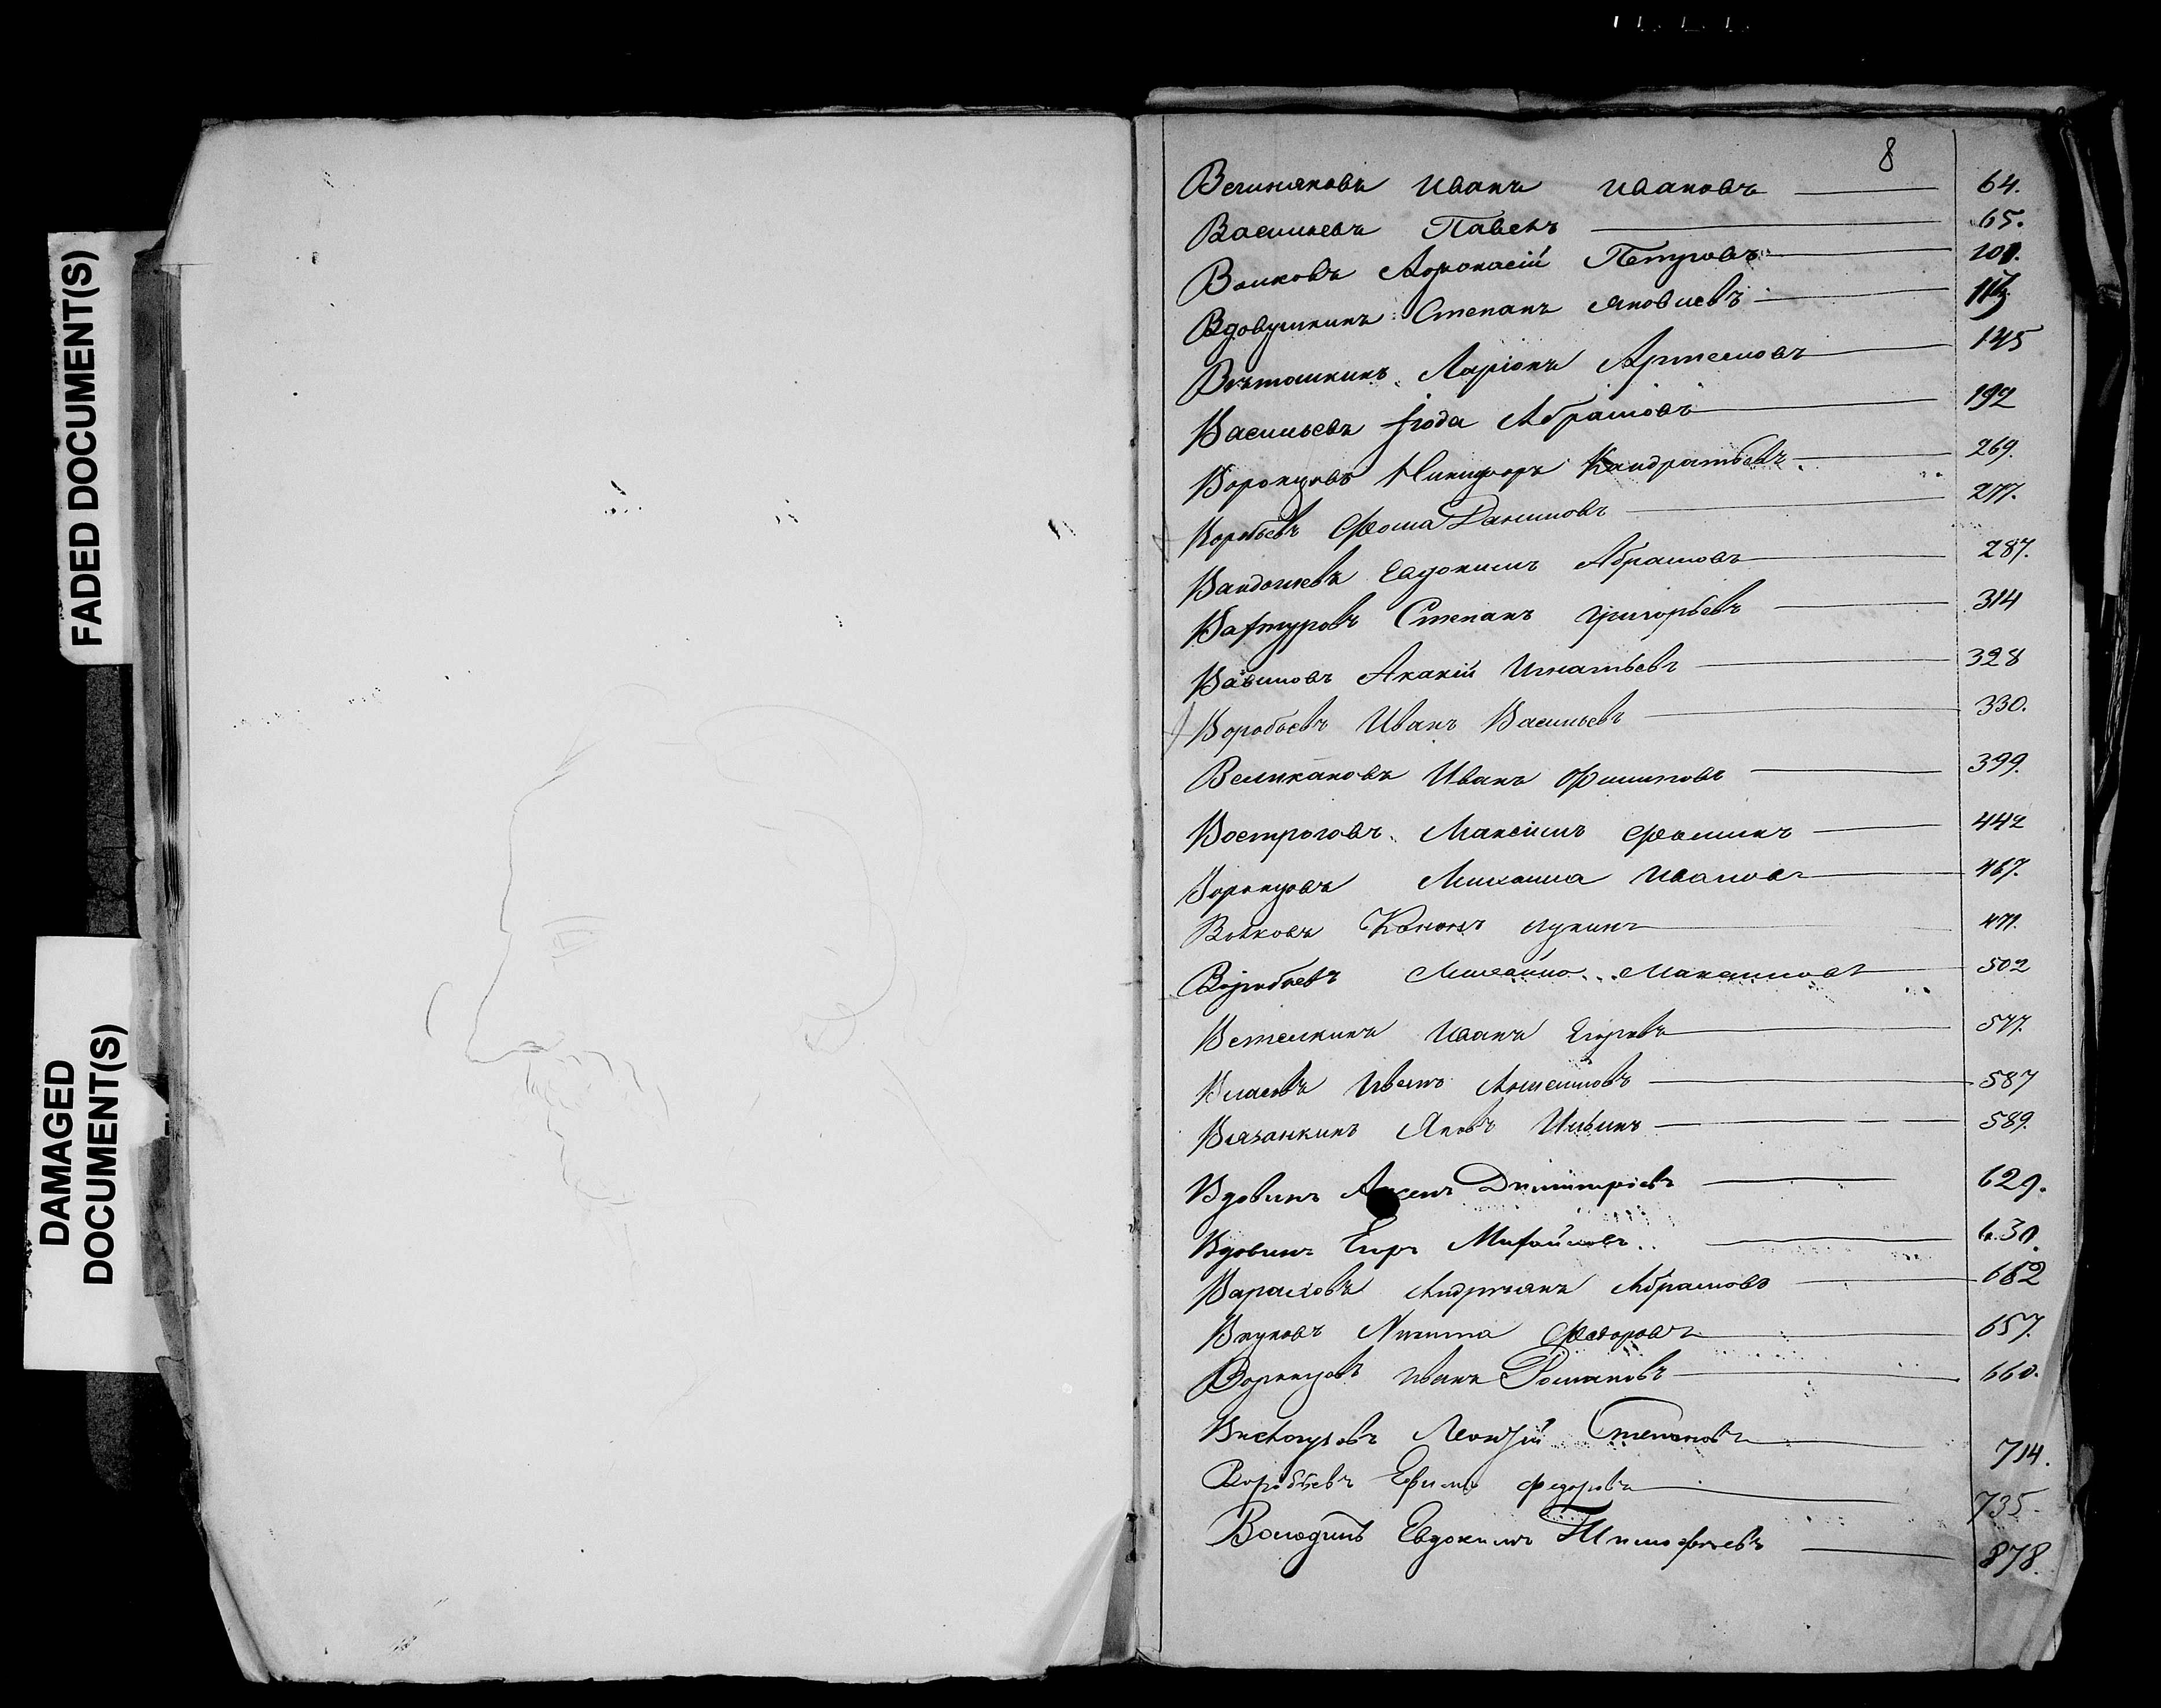 FADED DOCUMENT(S)
DAMAGED
DOCUMENT(S)
8
Иванъ Ивановъ 64.
Васильевъ Павелъ 65.
Волковъ Афонасій Петровъ
Вдовушкинъ Степанъ Яковлевъ
Вѣташкинъ Ларіонъ Артемовъ 145
Васильевъ Абрамовъ 192
Воронцовъ Никифоръ Кандратьевъ 269.
Воробьевъ Фома Даниловъ 277.
Евдокимъ Абрамовъ 287.
Вахтуровъ Степанъ Григорьевъ 314
Вавиловъ Акакій Игнатьевъ 328
Воробьевъ Иванъ Васильевъ 330.
Великановъ Иванъ Филиповъ 399.
Востроговъ Максимъ Фоминъ 442
Воронцовъ Михаила Ивановъ 467.
Волковъ Кононъ Лукинъ 471.
Воробьевъ Михайло Максимовъ 502
Ветелкинъ Иванъ Егоровъ 577.
Власовъ Иванъ 587
Вязанкинъ Яковъ Ильинъ 589.
Вдовинъ Димитріевъ 629.
Вдовинъ Егоръ Михайловъ 630.
Андреянъ Абрамовъ
Внуковъ Никита Федоровъ 657.
Воронцовъ Иванъ Романовъ 660.
Леонтій Степановъ 714.
Воробьевъ Ефимъ Федоровъ 735
Володинъ Евдокимъ Тимофѣевъ 878.